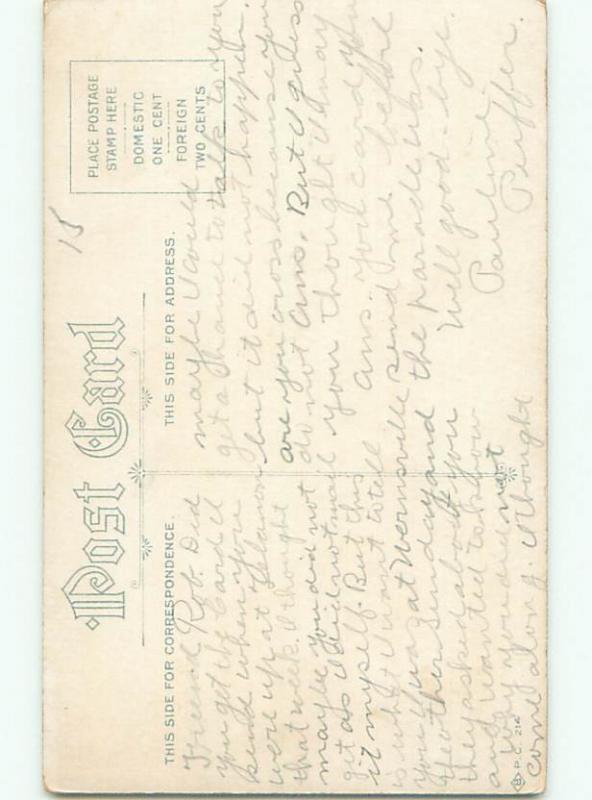 Post Card
THIS SIDE FOR CORRESPONDENCE.
THIS SIDE FOR ADDRESS.
PLACE POSTAGE
STAMP HERE
DOMESTIC
ONE CENT
FOREIGN
TWO CENTS
15
Friend Rob. Did
you get the Card I
sende when you
were up at Lebanon
that week. I thought
maybe you did not
get as I did not mail
it myself. But this
is what I want to tell
you I was at Wernsville
the other Sunday and
they asked about you
and wanted to know
why you did not
come along. I thought
maybe I could
get a chance to talk to you
but it did not happen.
are you cross because you
do not Ans. But I guess
you thought I may
Ans. your card you
send me before
the parade was.
Well good-bye.
Pauline
Peiffer.
P.C. 214